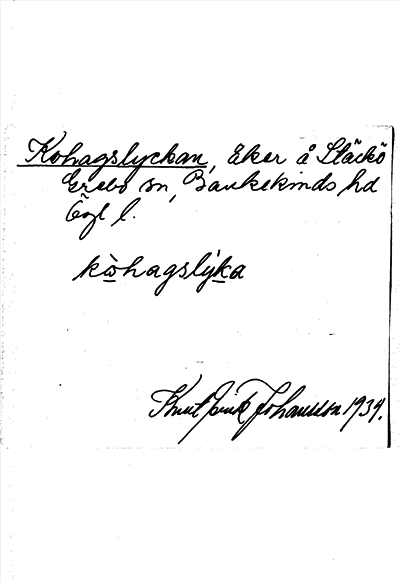 Kohagslyckan, Åker å Släckö
Grebo sn, Bankekinds hd
Ögl l.
kòhagslýka
Knut Johansson 1934.